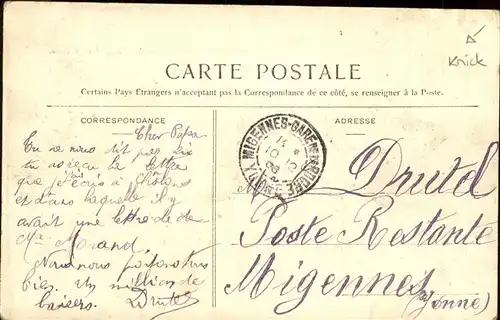 Knick
CARTE POSTALE
Certains Pays Étrangers n'acceptant pas la Correspondance de ce côté, se renseigner à la Poste.
CORRESPONDANCE
ADRESSE
MIGENNES-GARE
Cher Papa
Tu ne nous dit pas si
tu as reçu la lettre
que j'écris à
et dans laquelle il y
avait une lettre de
Mr Morand.
Nous nous portons très
bien. Un million de
baisers.
Poste Restante
Migennes
(Yonne)